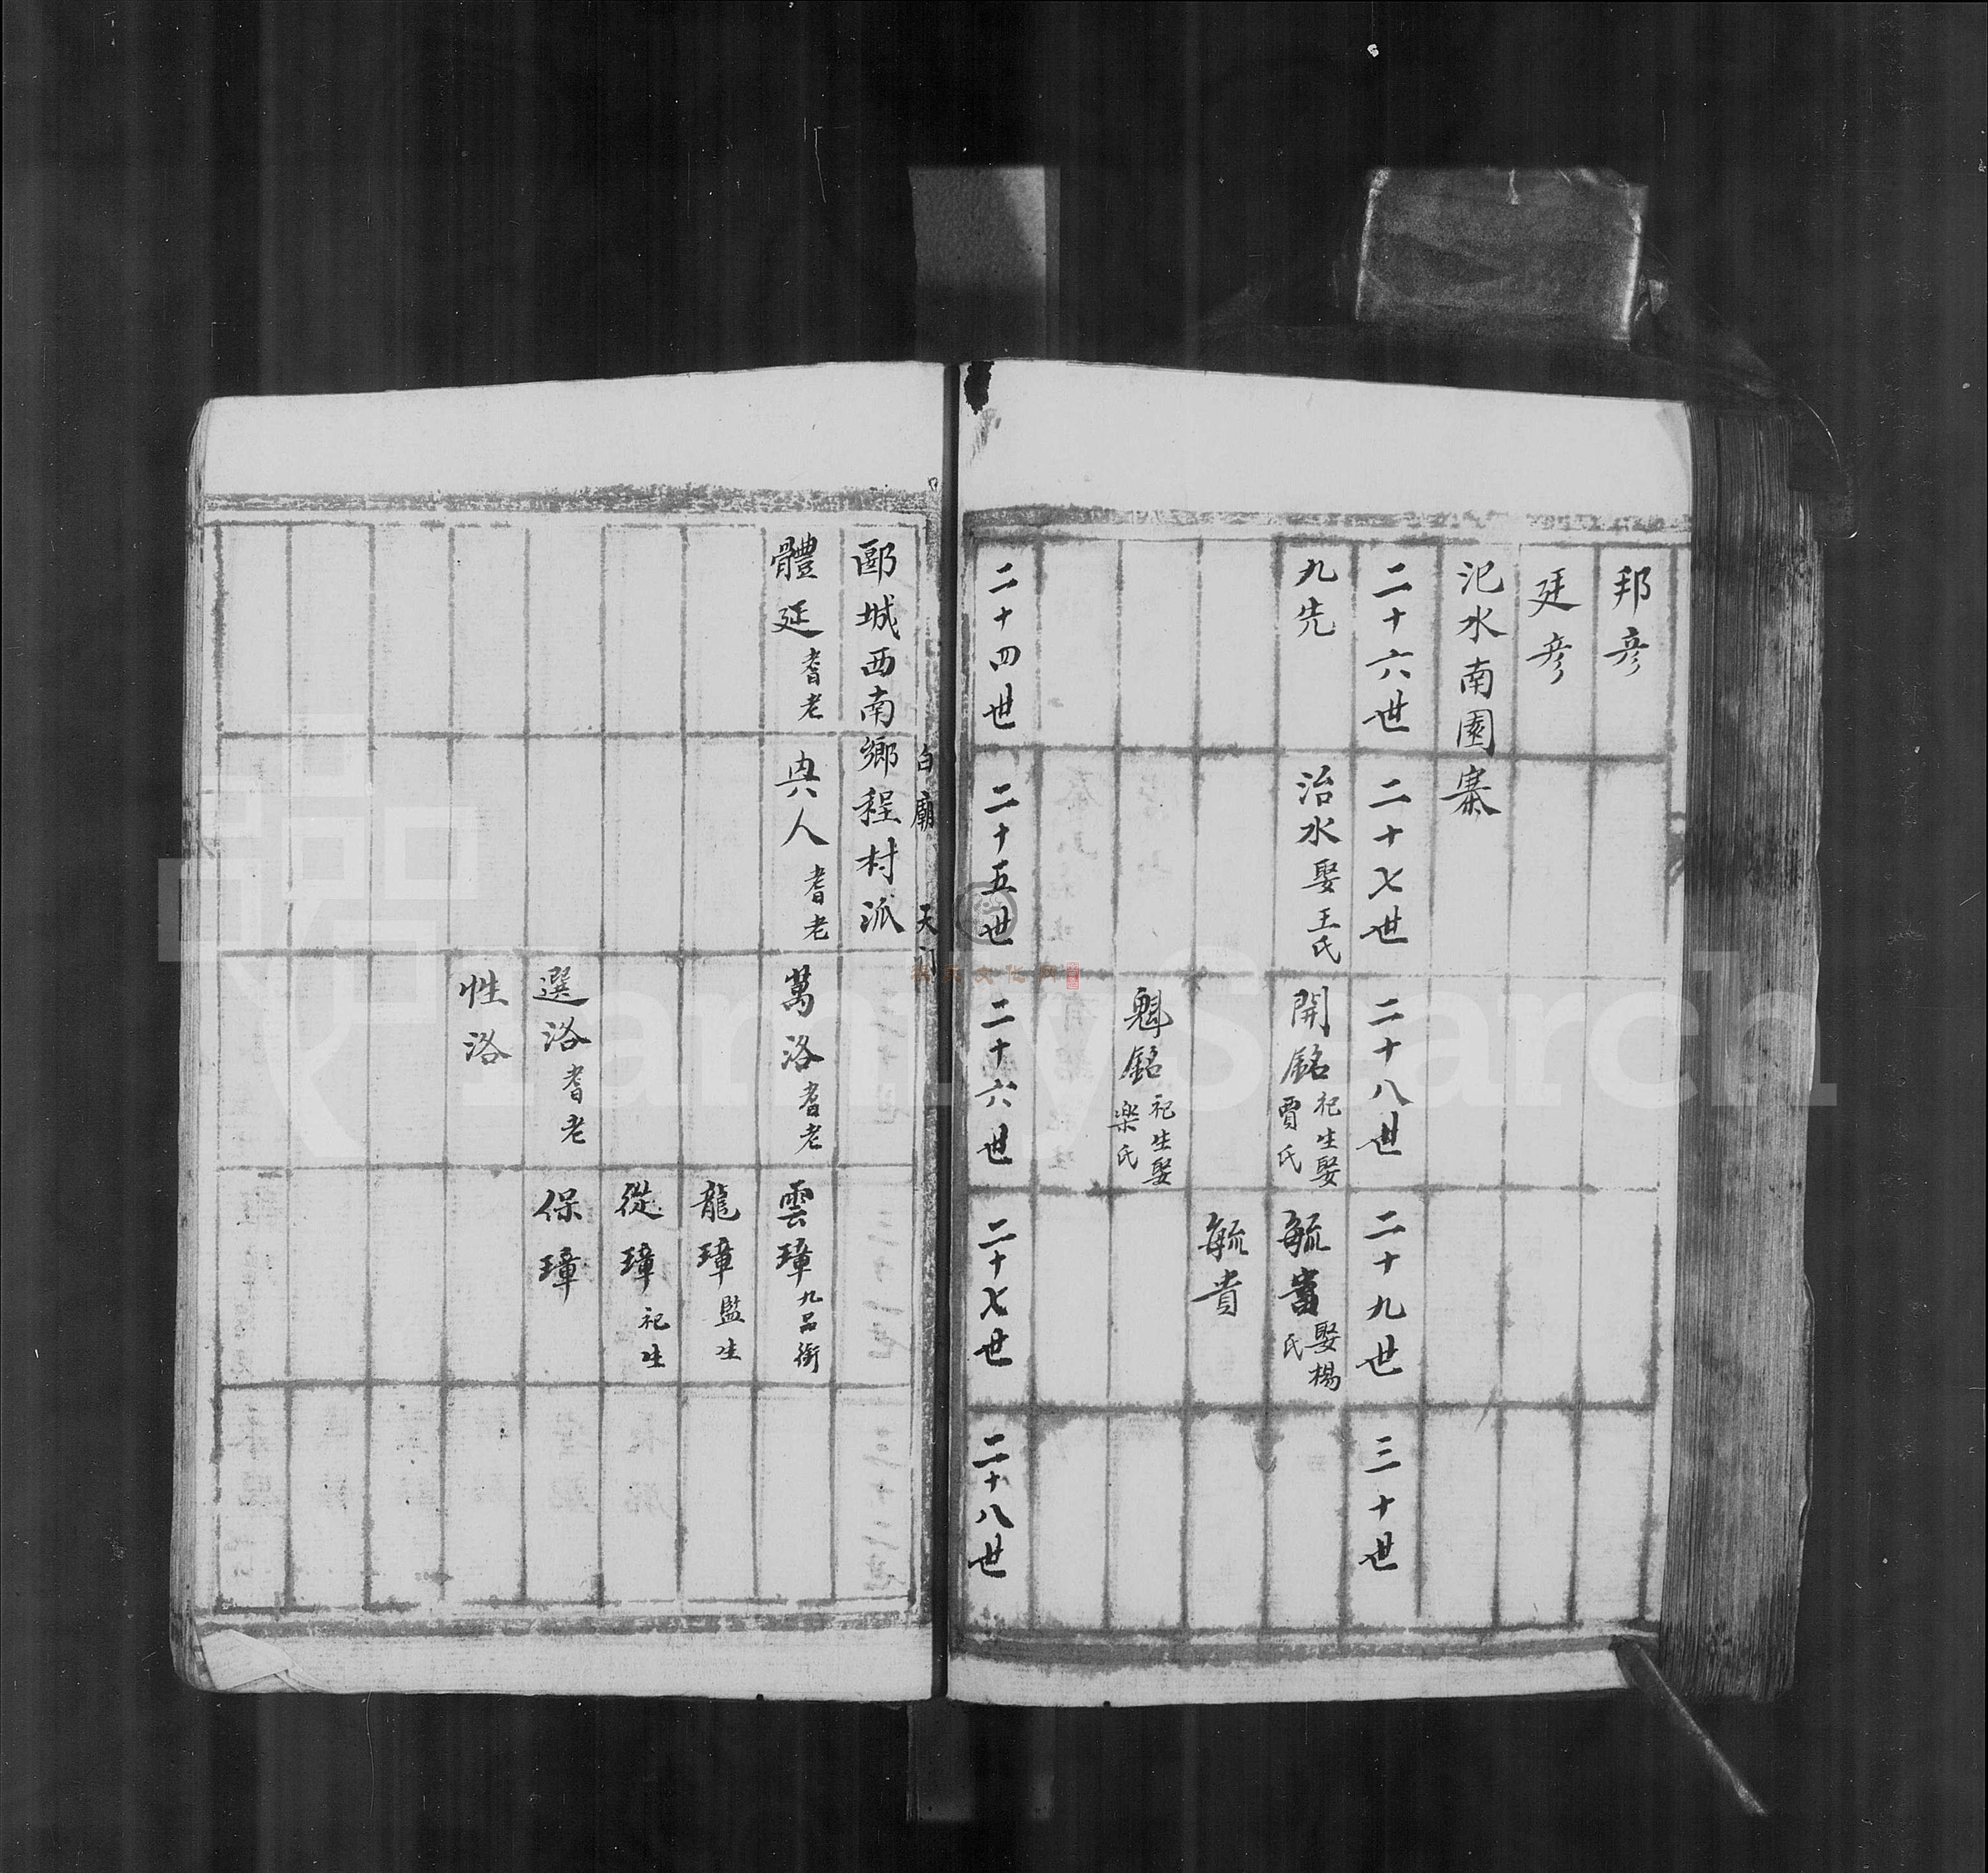 邦彦
廷彦
汜水南園寨
二十六世
二十七世
二十八世
二十九世
三十世
九先
治水 娶王氏
開銘 祀生娶賈氏
毓富 娶楊氏
毓貴
魁銘 祀生娶楽氏
二十四世
二十五世
二十六世
二十七世
二十八世
白廟 天
郾城西南鄉程村派
體廷 耆老
典人 耆老
萬洛 耆老
雲璋 九品銜
龍璋 監生
從璋 祀生
選洛 耆老
保璋
性洛
FamilySearch